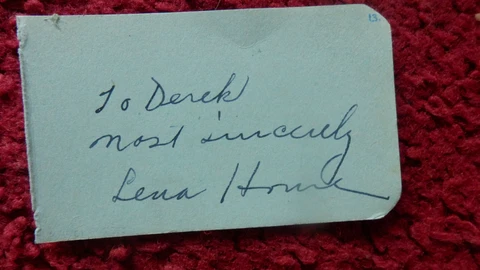 13.
To Derek
most sincerely
Lena Horne